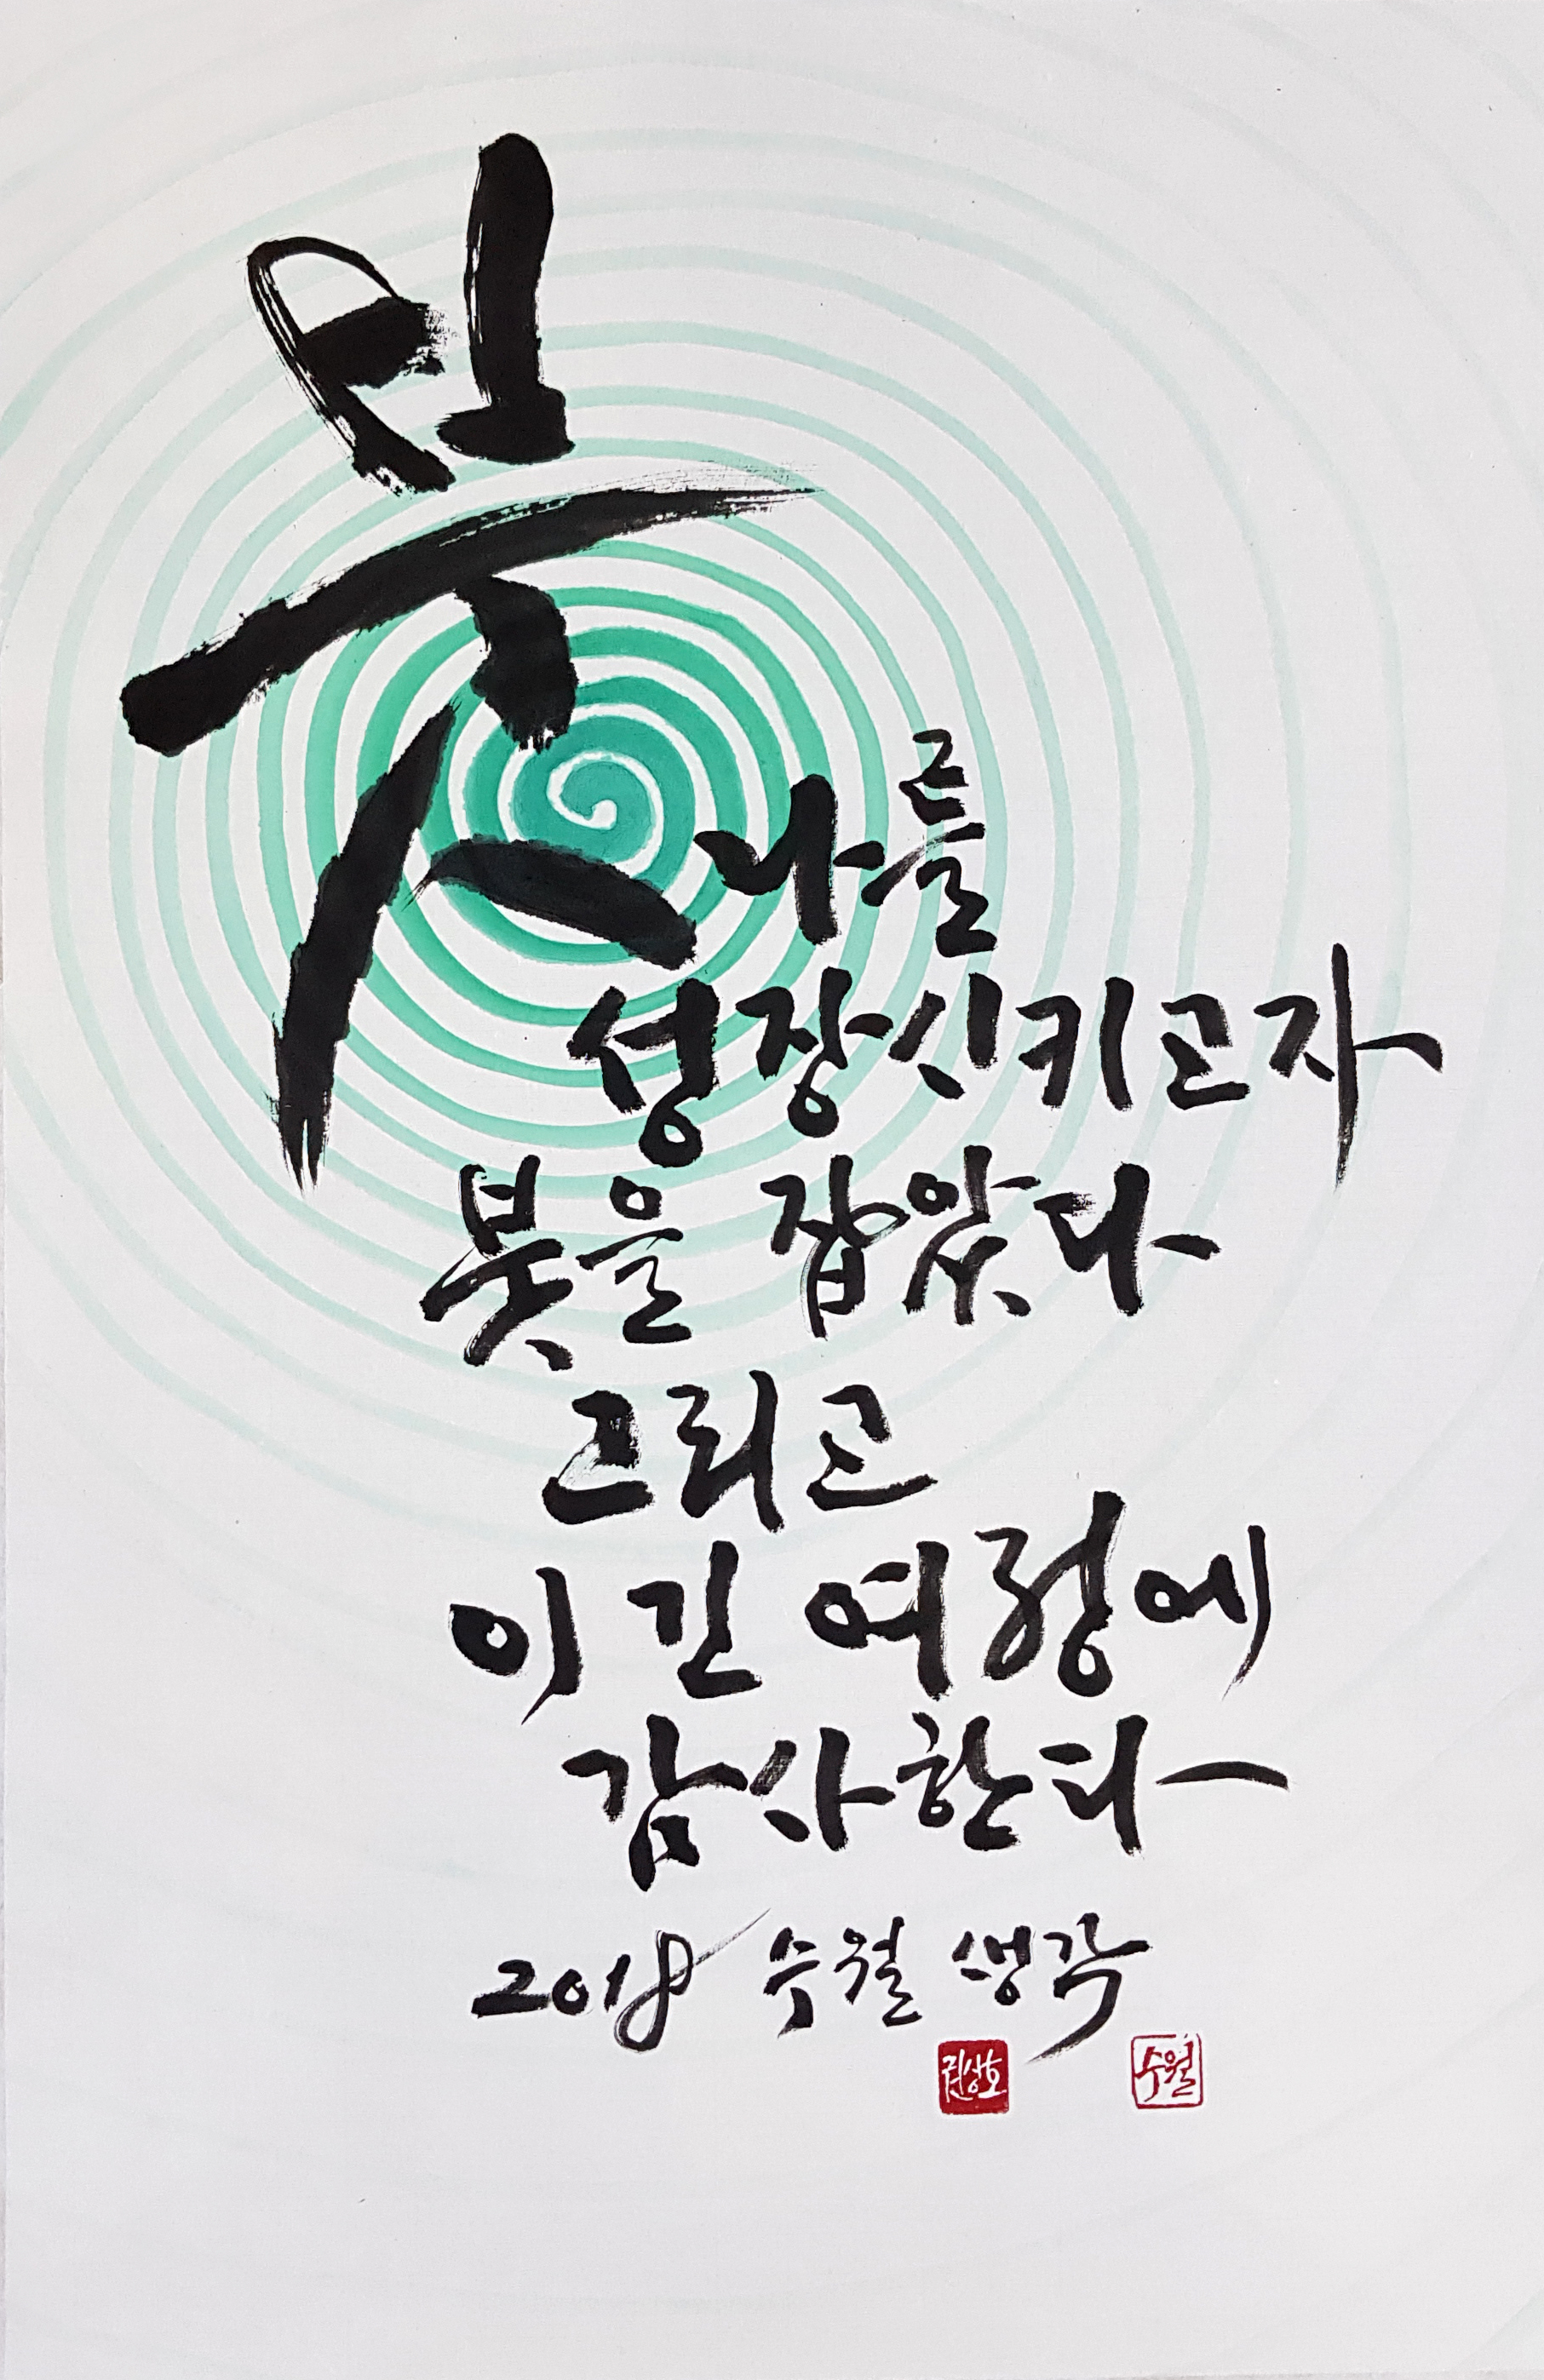 붓
나를
성장시키고자
붓을 잡았다
그리고
이 긴 여정에
감사한다
2018 수월 생각
권상호
수월